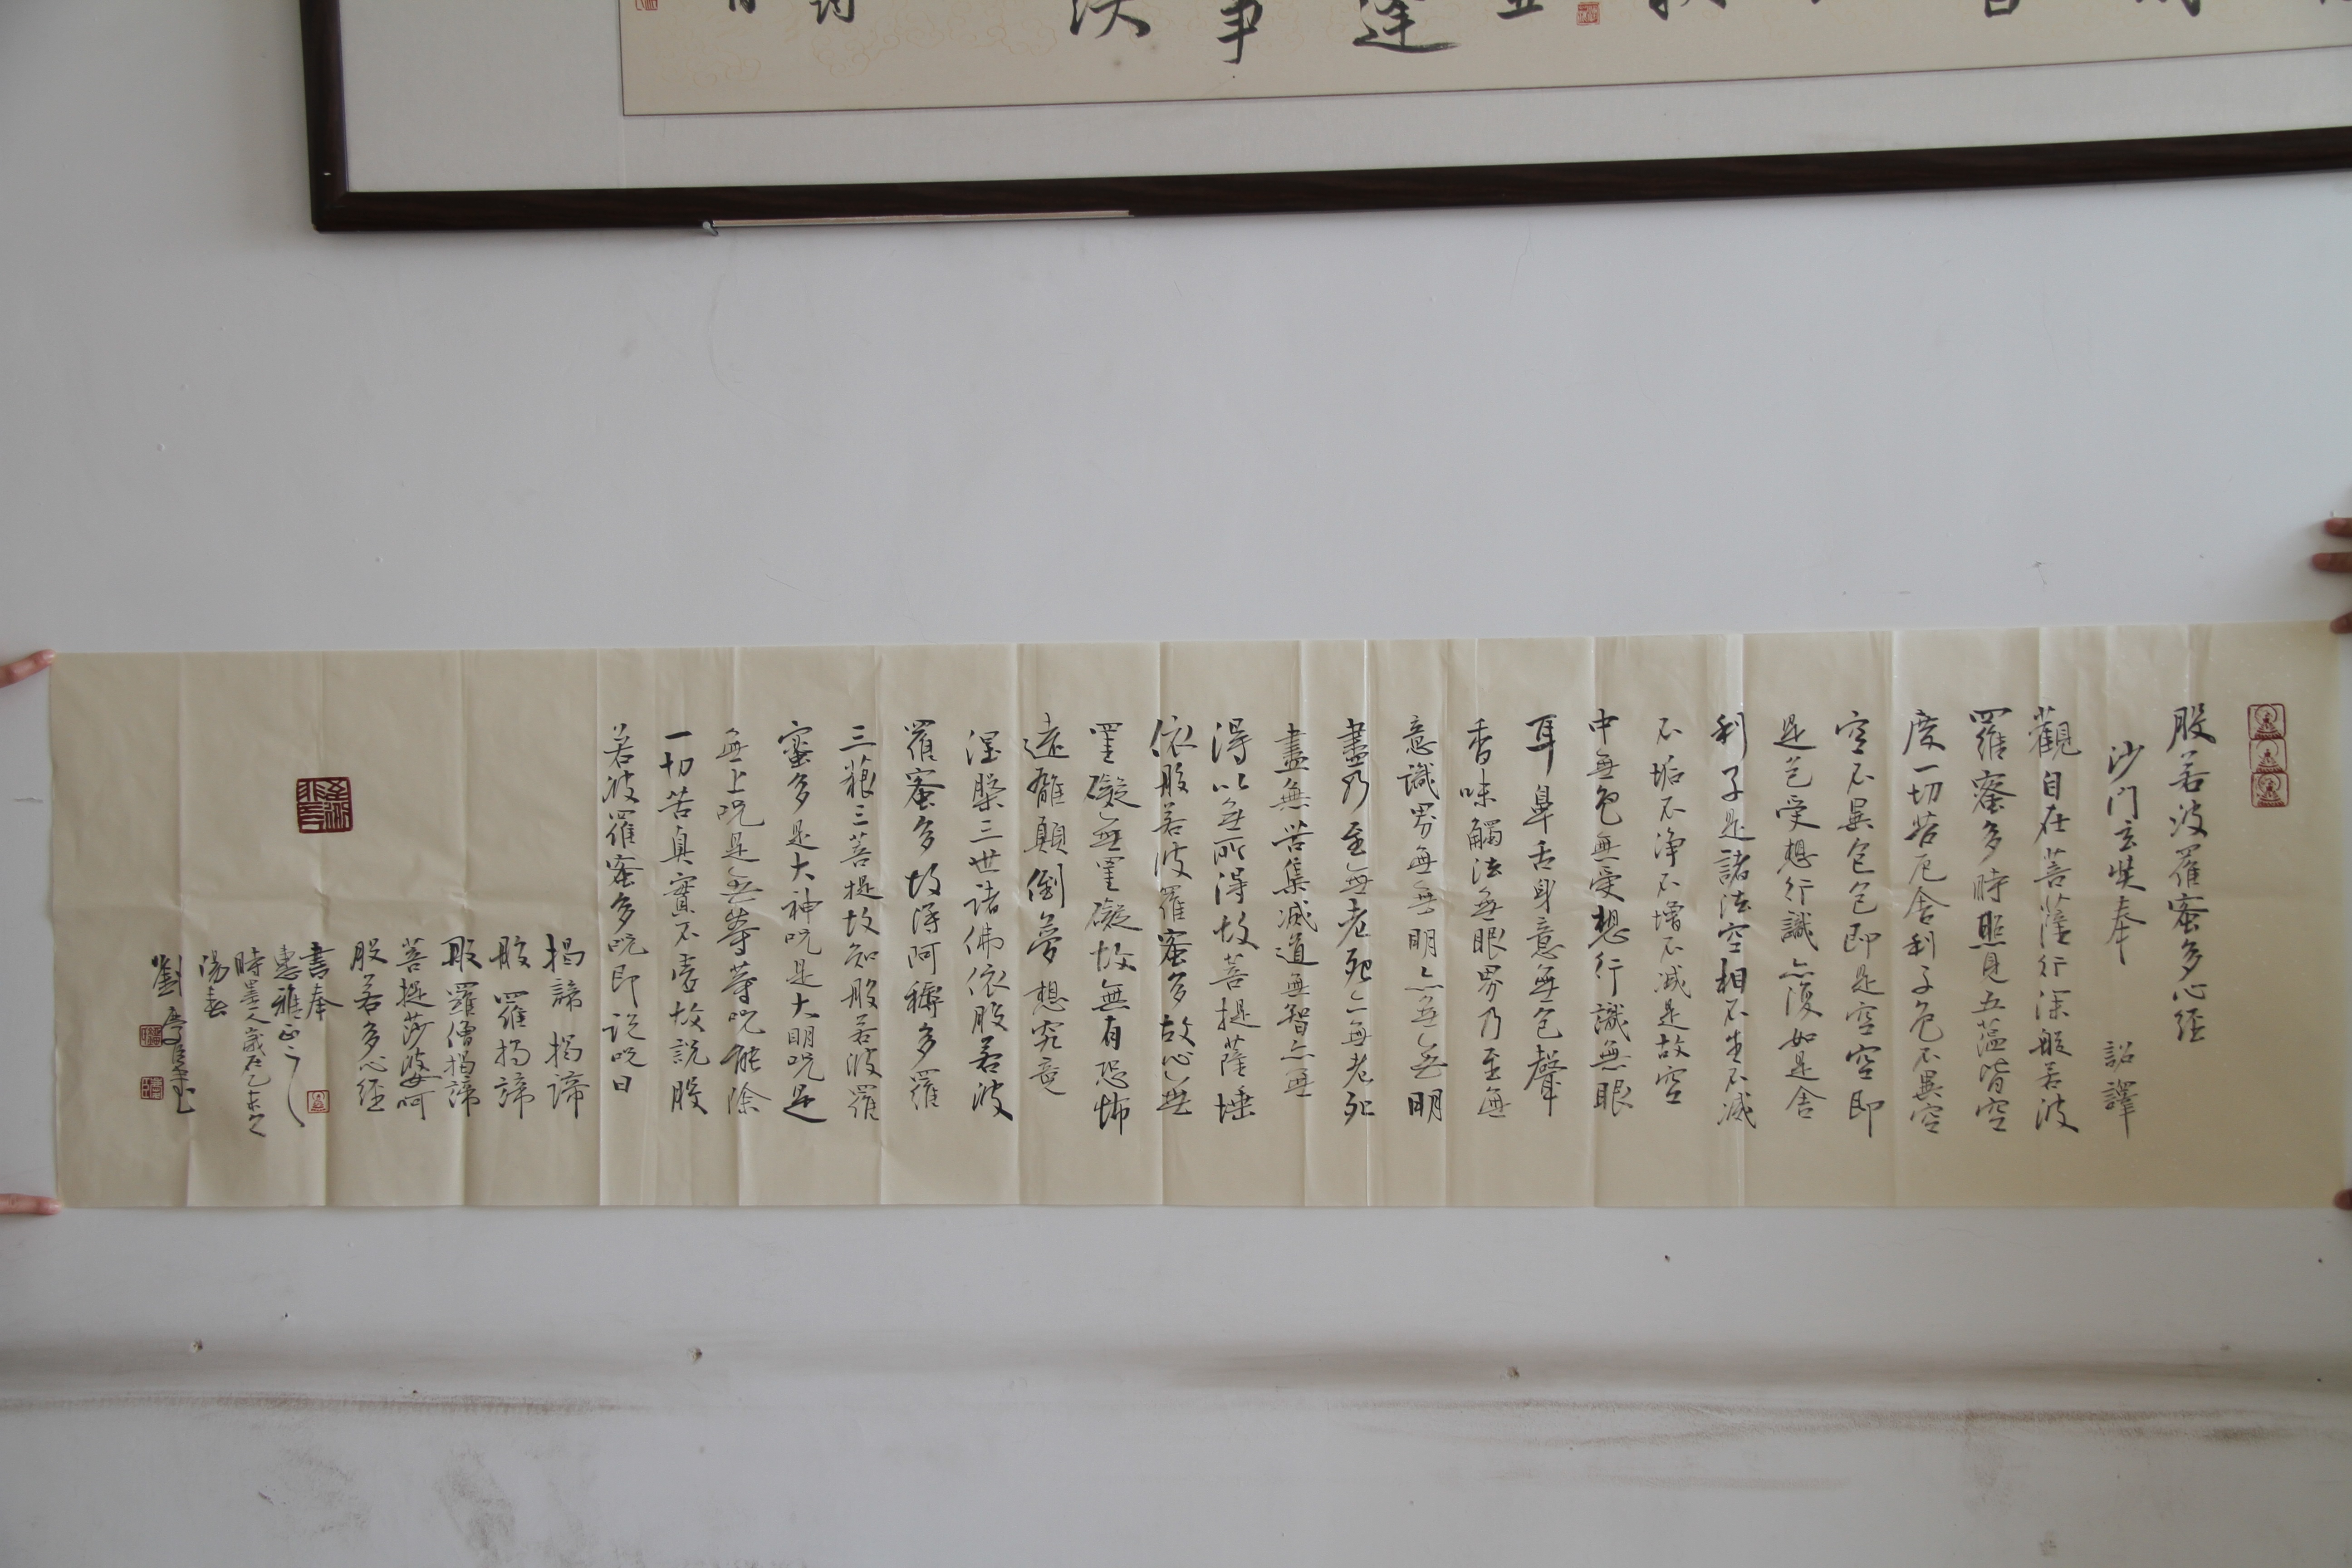 般若波羅蜜多心經
沙門玄奘奉 詔譯
觀自在菩薩行深般若波
羅蜜多時照見五蕴皆空
度一切苦厄舍利子色不異空
空不異色色即是空空即
是色受想行識亦復如是舍
利子是諸法空相不生不滅
不垢不净不增不减是故空
中無色無受想行識無眼
耳鼻舌身意無色聲
香味觸法無眼界乃至無
意識界無無明亦無無明
盡乃至無老死亦無老死
盡無苦集滅道無智亦無
得以無所得故菩提薩埵
依般若波羅蜜多故心無
罣礙無罣礙故無有恐怖
遠離顛倒夢想究竟
涅槃三世諸佛依般若波
羅蜜多故得阿耨多羅
三藐三菩提故知般若波羅
蜜多是大神咒是大明咒是
無上咒是無等等咒能除
一切苦真實不虛故說般
若波羅蜜多咒即说咒曰
揭諦 揭諦
般羅揭諦
般羅僧揭諦
菩提莎婆呵
般若多心經
書奉
惠雅正之
時 歲在乙未之
陽春
劉
逢
事